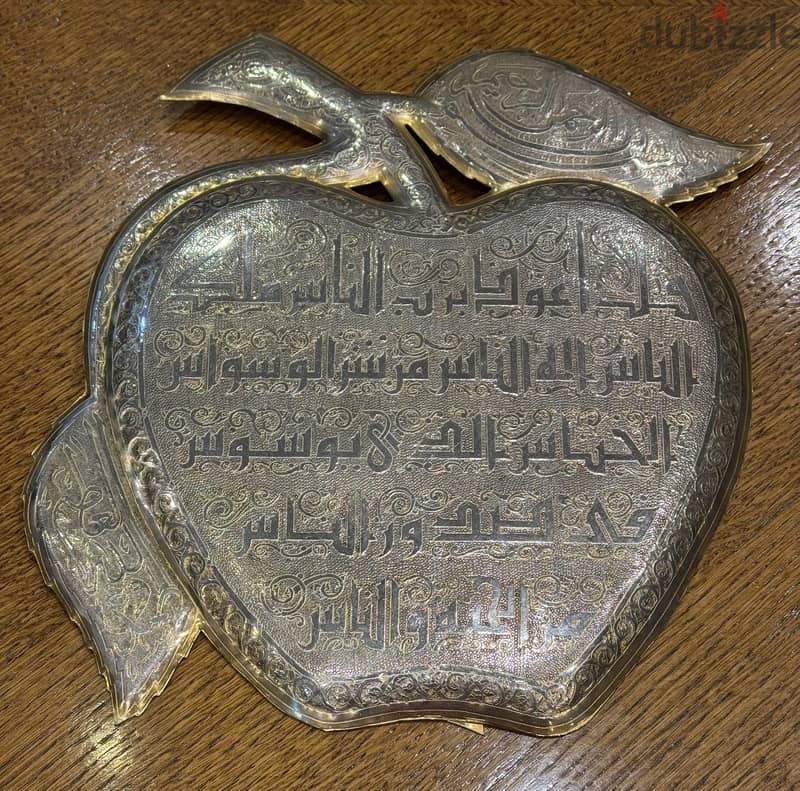 dubizzle
قل أعوذ برب الناس ملك
الناس إله الناس من شر الوسواس
الخناس الذي يوسوس
في صدور الناس
من الجنة والناس